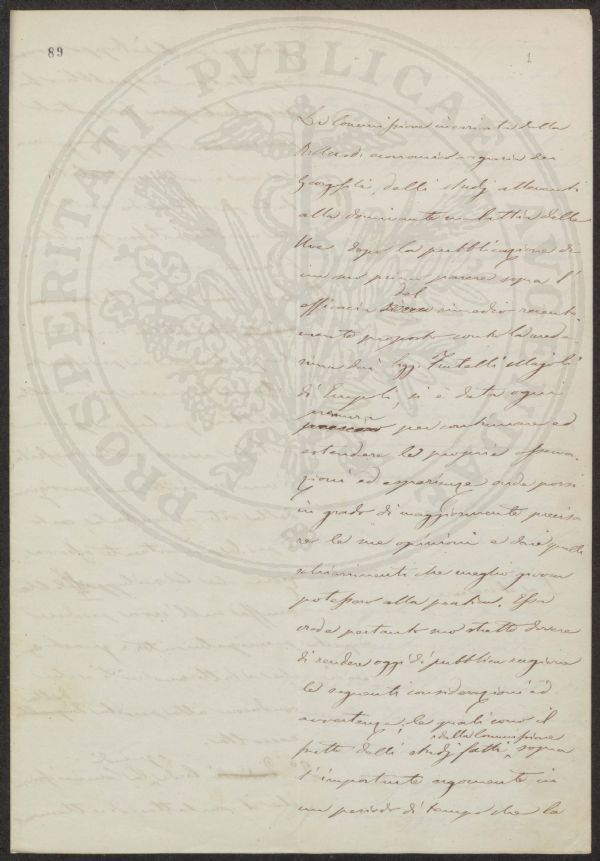 89
1
PROSPERITATI PUBLICAE AUGENDAE
La Commissione incaricata dalla
R. Acc. di economia agraria dei
Georgofili, dalli studj attenenti
alla dominante malattia delle
Uve dopo la pubblicazione di
un suo primo parere sopra l'
efficacia del rimedio recente
mente proposto contro la mede
sima dai Sigg. Fratelli
di Empoli, si è data ogni
premura per continuare ed
estendere le proprie osserva
zioni ed esperienze onde porsi
in grado di maggiormente precisa
re le sue opinioni e dare quelli
schiarimenti che meglio giovar
potessero alla pratica. Essa
crede pertanto suo stretto dovere
di rendere oggi di pubblica ragione
le seguenti considerazioni ed
avvertenze, le quali sono il
frutto delli studj fatti dalla Commissione sopra
l'importante argomento in
un periodo di tempo che la